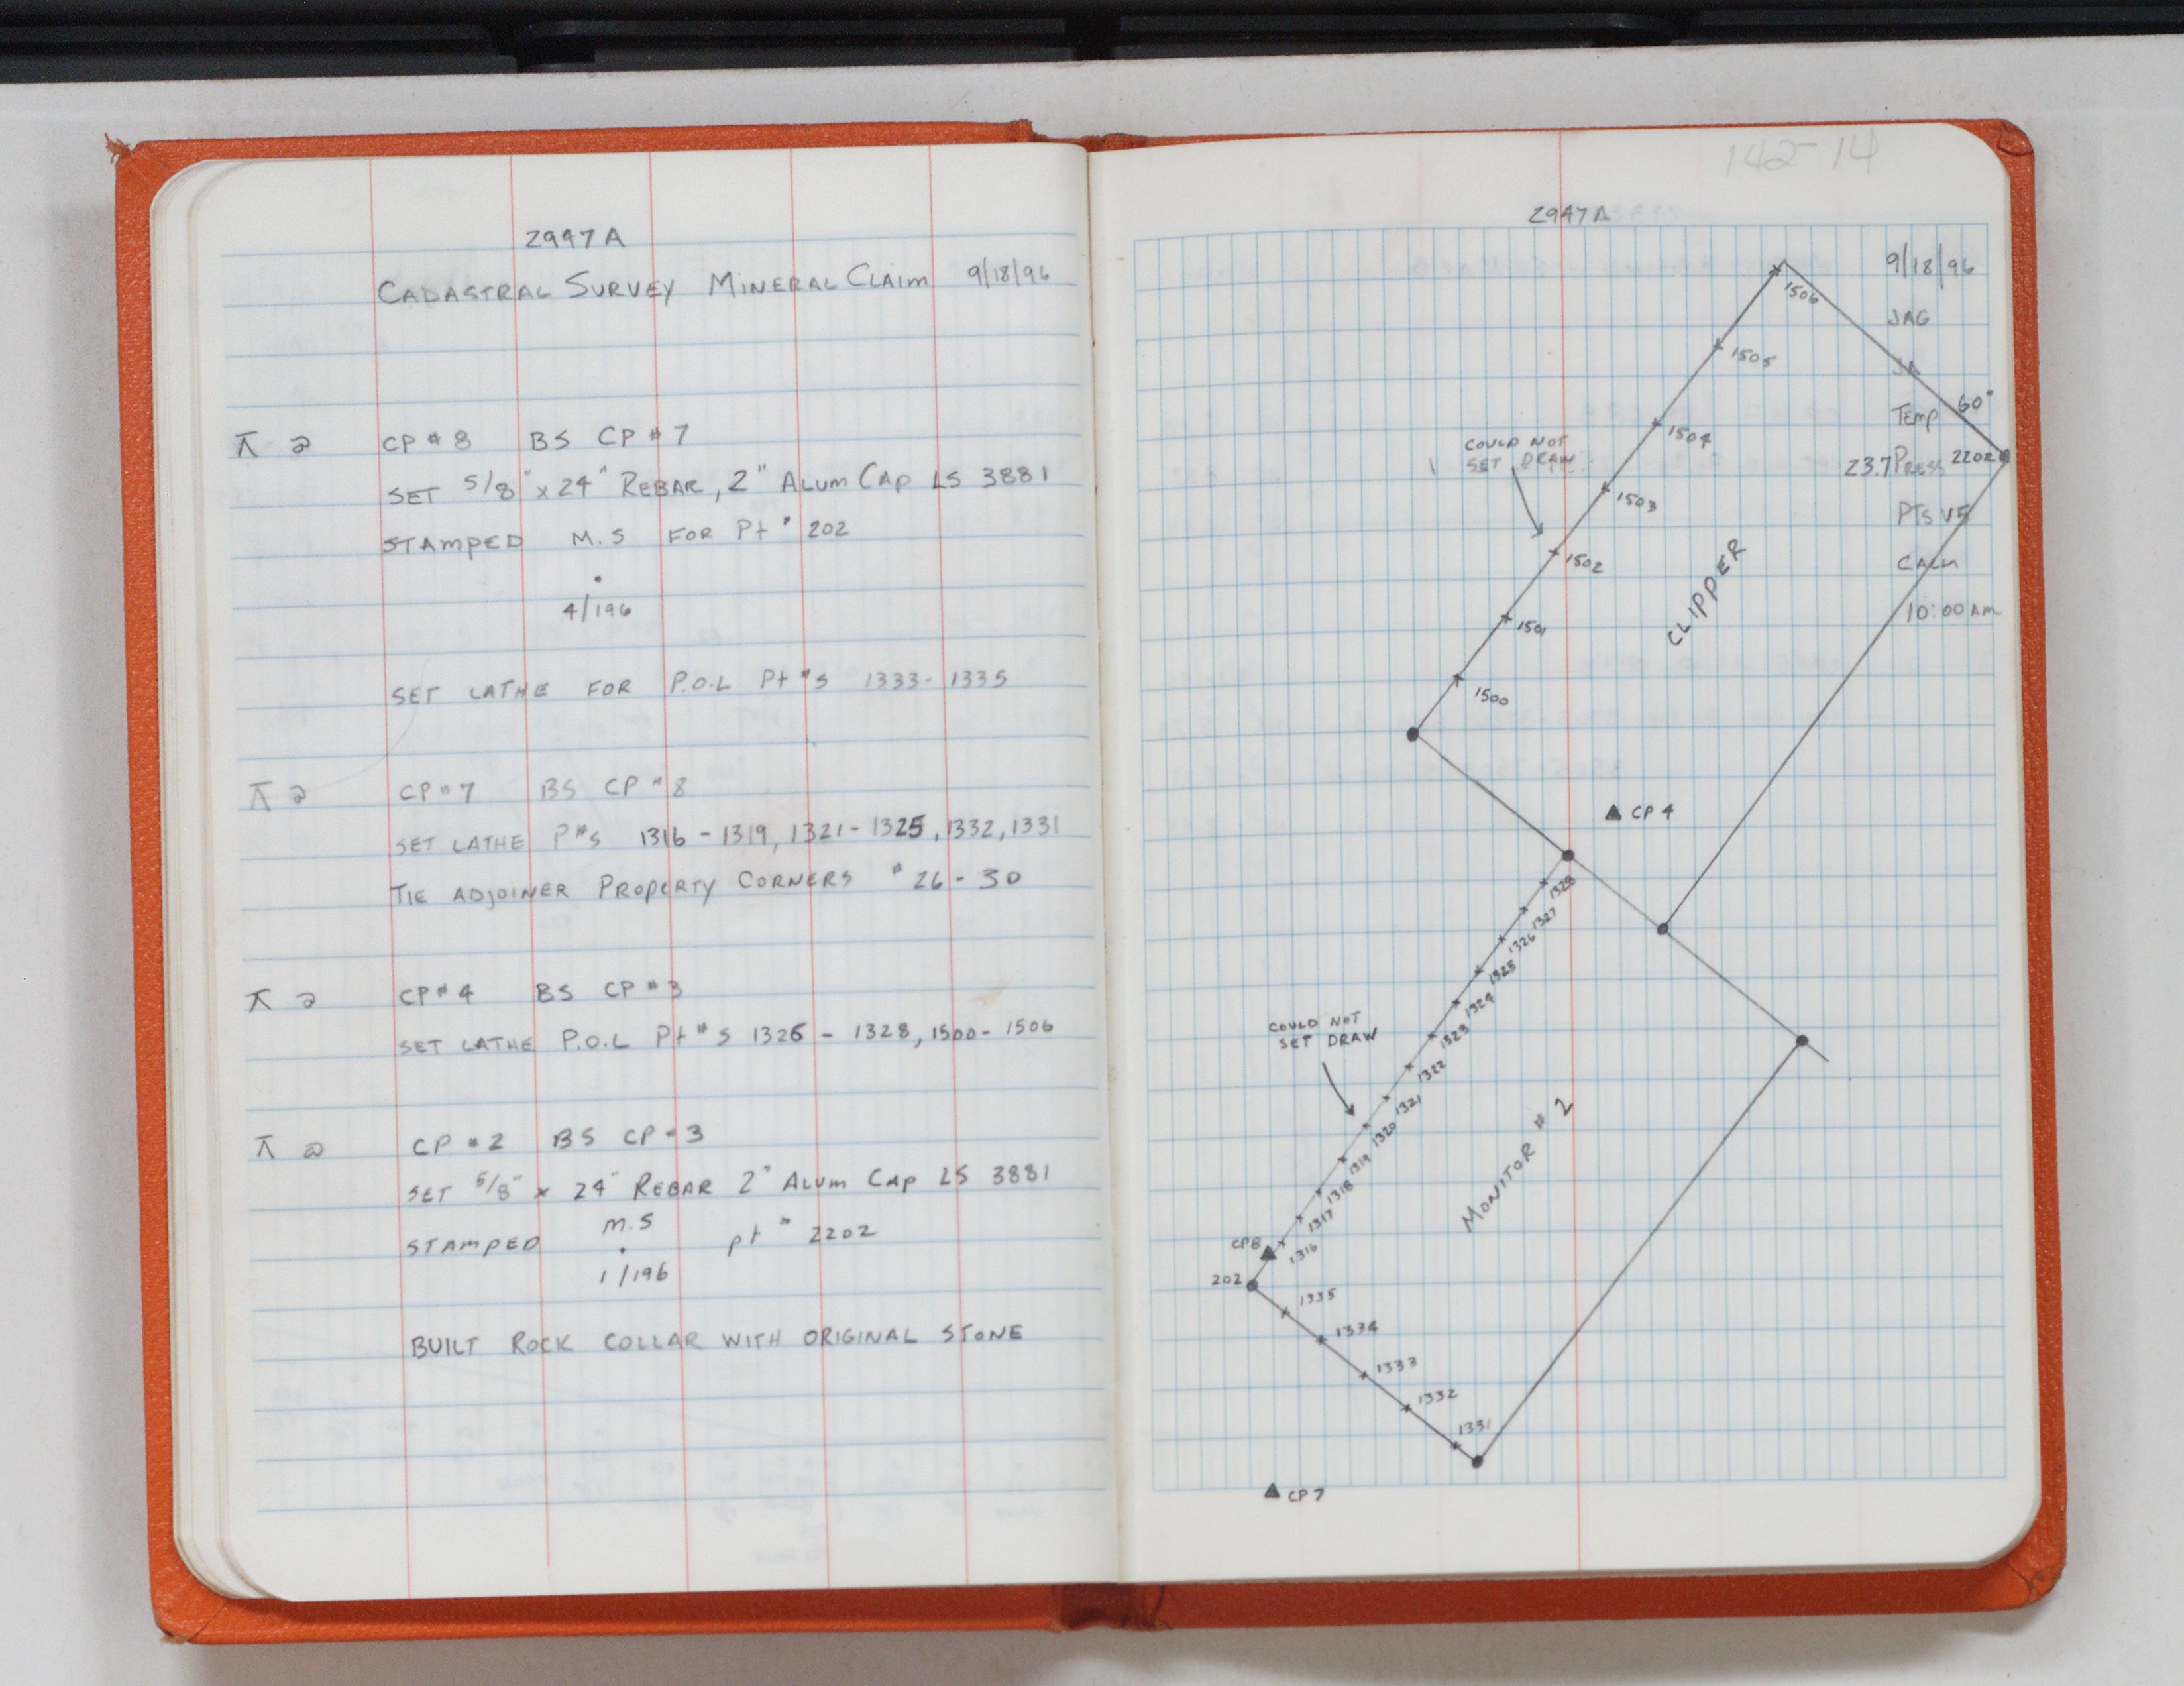 2947A
CADASTRAL SURVEY MINERAL CLAIM 9/18/96
CP # 8 BS CP # 7
SET 5/8" x 24" REBAR, 2" ALUM CAP LS 3881
STAMPED M.S FOR Pt # 202
4/196
SET LATHE FOR P.O.L Pt #s 1333-1335
CP # 7 BS CP # 8
SET LATHE P#s 1316 - 1319, 1321 - 1325, 1332, 1331
TIE ADJOINER PROPERTY CORNERS # 26 - 30
CP # 4 BS CP # 3
SET LATHE P.O.L Pt # S 1326 - 1328, 1500 - 1506
CP # 2 BS CP # 3
SET 5/8" x 24" REBAR 2" ALUM CAP LS 3881
M.S
STAMPED pt # 2202
1/196
BUILT ROCK COLLAR WITH ORIGINAL STONE
142-14
2947A
9/18/96
JAG
JA
TEMP 60°
23.7 PRESS
2202
CALM
10:00 AM
1506
1505
1504
COULD NOT
SET DRAW
1503
1502
1501
1500
CLIPPER
CP 4
1328
1327
1326
1325
1324
1323
1322
1321
COULD NOT
SET DRAW
1320
1319
1318
1317
1316
MONITOR # 2
CP8
202
1335
1334
1333
1332
1331
CP 7